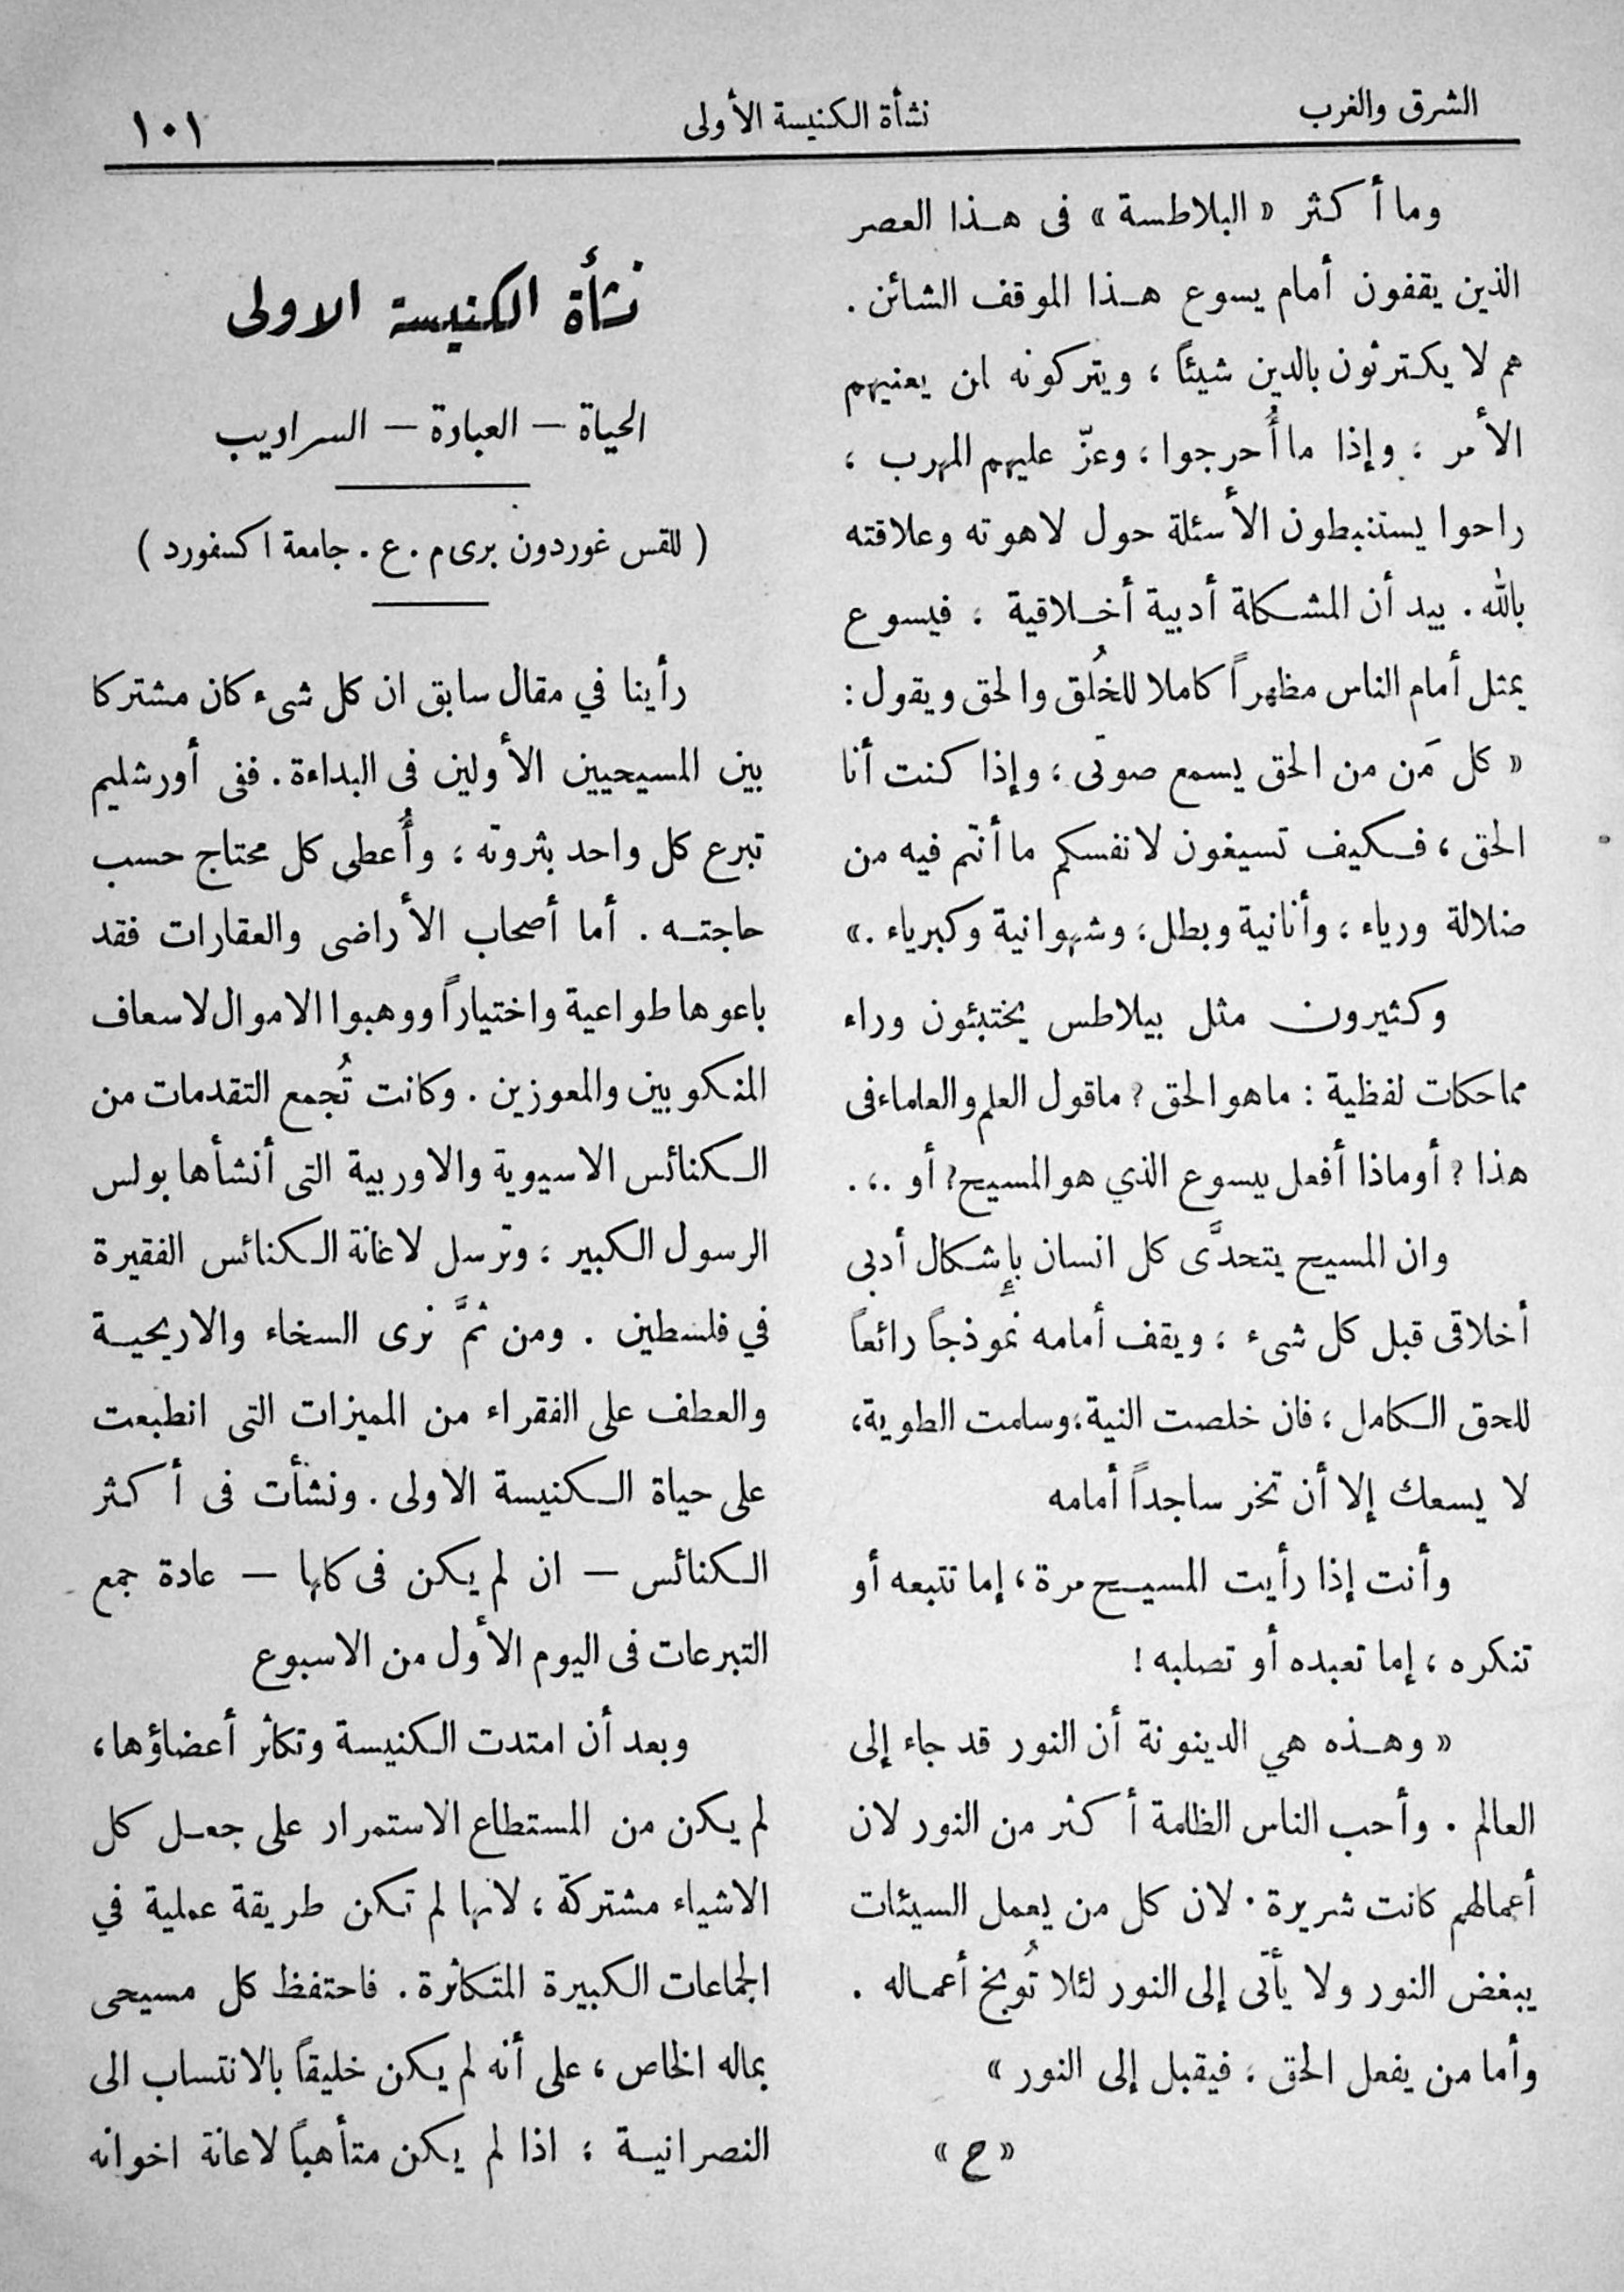 الشرق والغرب
نشأة الكنيسة الأولى
١٠١
وما أكثر « البلاطسة » فى هذا العصر
الذين يقفون أمام يسوع هذا الموقف الشائن .
هم لا يكترثون بالدين شيئاً ، ويتركونه لمن يعنيهم
الأمر ، وإذا ما أُحرجوا ، وعزّ عليهم المهرب ،
راحوا يستنبطون الأسئلة حول لاهوته وعلاقته
بالله . بيد أن المشكلة أدبية أخلاقية ، فيسوع
يمثل أمام الناس مظهراً كاملا للخُلق والحق ويقول :
« كل مَن من الحق يسمع صوتى ، وإذا كنت أنا
الحق ، فكيف تسيغون لانفسكم ما أنتم فيه من
ضلالة ورياء ، وأنانية وبطل ، وشهوانية وكبرياء . »
وكثيرون مثل بيلاطس يختبئون وراء
مماحكات لفظية : ماهو الحق ? ماقول العلم والعلماء فى
هذا ? أو ماذا أفعل بيسوع الذي هو المسيح ? أو . . .
وان المسيح يتحدَّى كل انسان بإِشكال أدبى
أخلاقى قبل كل شىء ، ويقف أمامه نموذجاً رائعاً
للحق الكامل ، فان خلصت النية ، وسلمت الطوية ،
لا يسعك إلا أن تخر ساجداً أمامه
وأنت إذا رأيت المسيح مرة ، إما تتبعه أو
تنكره ، إما تعبده أو تصلبه !
« وهذه هي الدينونة أن النور قد جاء إلى
العالم . وأحب الناس الظلمة أكثر من النور لان
أعمالهم كانت شريرة . لان كل من يعمل السيئات
يبغض النور ولا يأتى إلى النور لئلا تُوبخ أعماله .
وأما من يفعل الحق ، فيقبل إلى النور »
« ح »
نشأة الكنيسة الاولى
الحياة — العبادة — السراديب
( للقس غوردون برى م . ع . جامعة اكسفورد )
رأينا في مقال سابق ان كل شىء كان مشتركا
بين المسيحيين الأولين فى البداءة . ففى أورشليم
تبرع كل واحد بثروته ، وأُعطى كل محتاج حسب
حاجته . أما أصحاب الأراضى والعقارات فقد
باعوها طواعية واختياراً ووهبوا الاموال لاسعاف
المنكوبين والمعوزين . وكانت تُجمع التقدمات من
الكنائس الاسيوية والاوربية التى أنشأها بولس
الرسول الكبير ، وترسل لاغاثة الكنائس الفقيرة
في فلسطين . ومن ثمَّ نرى السخاء والاريحية
والعطف على الفقراء من المميزات التى انطبعت
على حياة الكنيسة الاولى . ونشأت فى أكثر
الكنائس — ان لم يكن فى كلها — عادة جمع
التبرعات فى اليوم الأول من الاسبوع
وبعد أن امتدت الكنيسة وتكاثر أعضاؤها ،
لم يكن من المستطاع الاستمرار على جعل كل
الاشياء مشتركة ، لانها لم تكن طريقة عملية في
الجماعات الكبيرة المتكاثرة . فاحتفظ كل مسيحى
بماله الخاص ، على أنه لم يكن خليقاً بالانتساب الى
النصرانية ، اذا لم يكن متأهباً لاعانة اخوانه